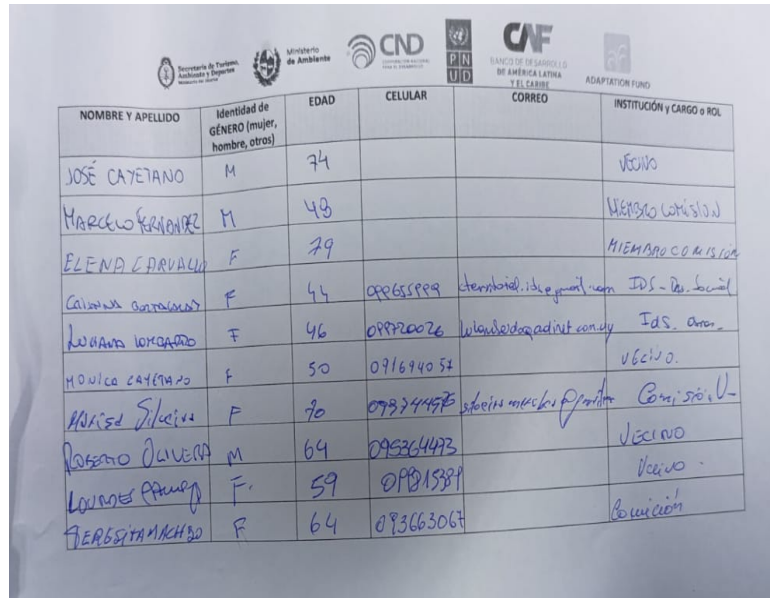 Secretaría de Turismo, Ambiente y Deportes
Ministerio de Ambiente
CND
PNUD
CAF
BANCO DE DESARROLLO DE AMÉRICA LATINA Y EL CARIBE
ADAPTATION FUND
NOMBRE Y APELLIDO Identidad de GÉNERO (mujer, hombre, otros) EDAD CELULAR CORREO INSTITUCIÓN y CARGO o ROL
JOSÉ CAYETANO M 74 VECINO
MARCELO FERNANDEZ M 43 MIEMBRO COMISION
ELENA CARVALLO F 79 MIEMBRO COMISIÓN
F 44 099655999 IDS - Social
LUCIANA LOMBARDO F 46 099720026 IdS.
MONICA CAYETANO F 50 091694057 VECINO.
MARISA Silveira F 70 Comisión
ROBERTO OLIVERA M 64 095364473 VECINO
LOURDES F. 59 Vecino.
TERESITA MACHADO F 64 093663067 Comición